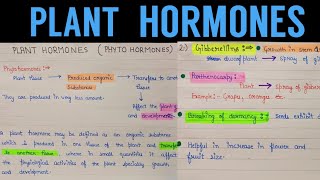 PLANT HORMONES
PLANT HORMONES (PHYTO HORMONES)
Phytohormone :-
Plant tissue → Produced organic Substances → Transfere to another tissue
Affect the plant growth and development
They are produced in very less amount.
A plant hormone may be defined as an organic substance
which is produced in one tissue of the plant and transfer
to another tissue where in small quantities it affect
the physiological activities of the plant specially growth
and development.
2:) Gibberellins :→ Growth in stem
plant → spray of gibb
Parthenocarpy :-
Plant → spray of gibbe
Example :- Grapes, oranges etc.
Breaking of dormancy :- Seeds exhibit d
Helpful in increase in flower and
fruit size.